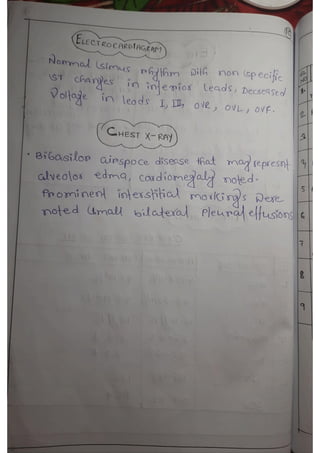 ELECTROCARDIAGRAM
Normal Isimus rhythm with non specific
ST changes in inferior leads, Decreased
Voltage in leads I, III, aVR, aVL, aVF.
CHEST X-RAY
• Bibasilar airspace disease that may represnt
alveolor edma, cardiomegaly noted.
Prominent interstitial markings were
noted Small bilateral, Pleural effusions
5
6
7
8
9